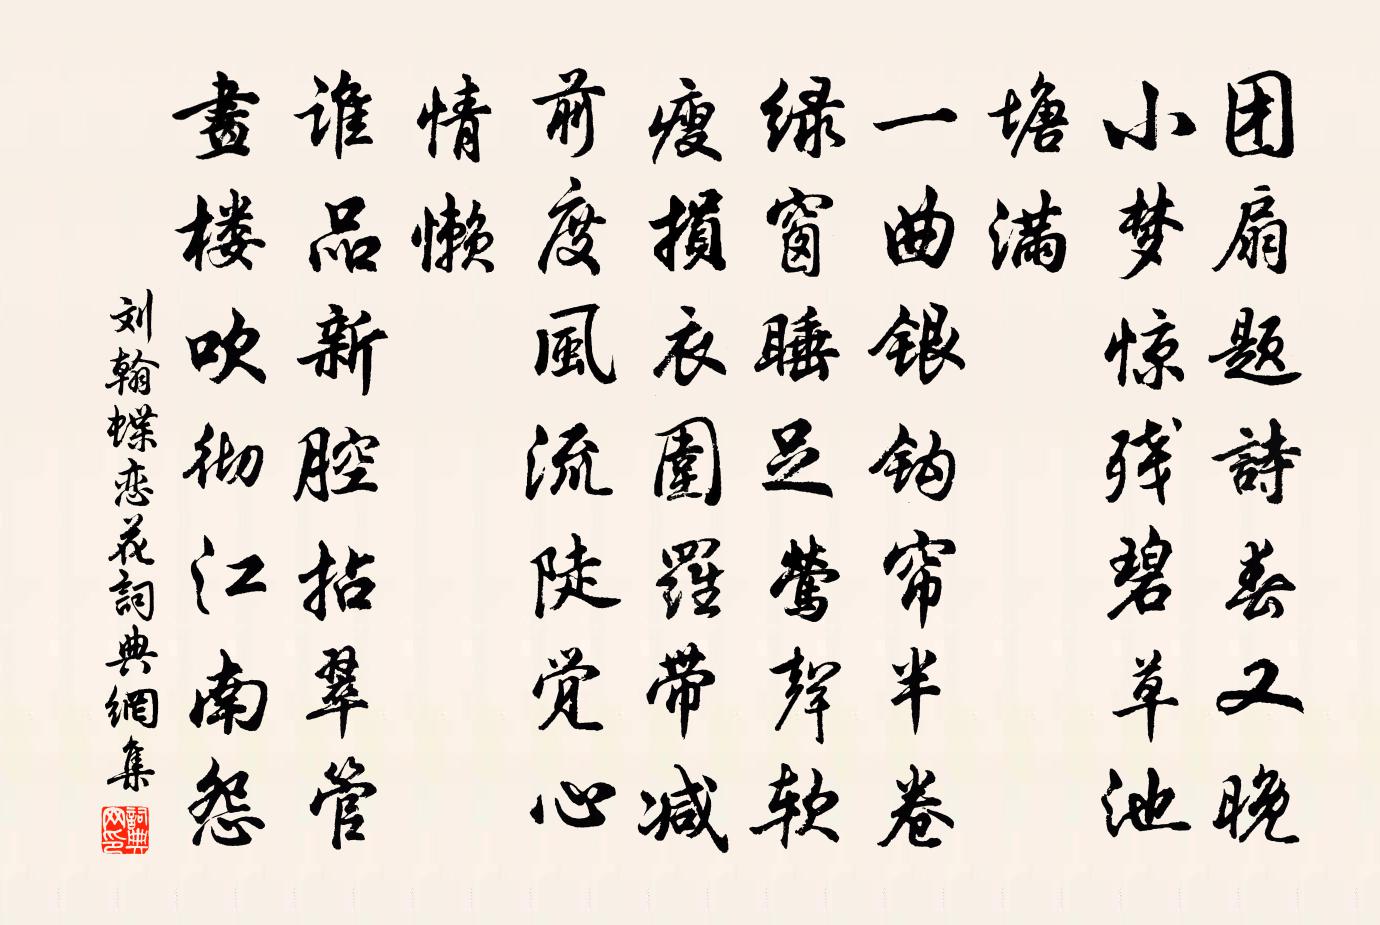 团扇题詩春又晚
小梦惊残碧草池
塘满
一曲银钩帘半卷
绿窗睡足莺聲软
瘦損衣圍羅带减
前度風流陡觉心
情懒
谁品新腔拈翠管
畫楼吹彻江南怨
刘翰蝶恋花詞典網集
詞典
网印